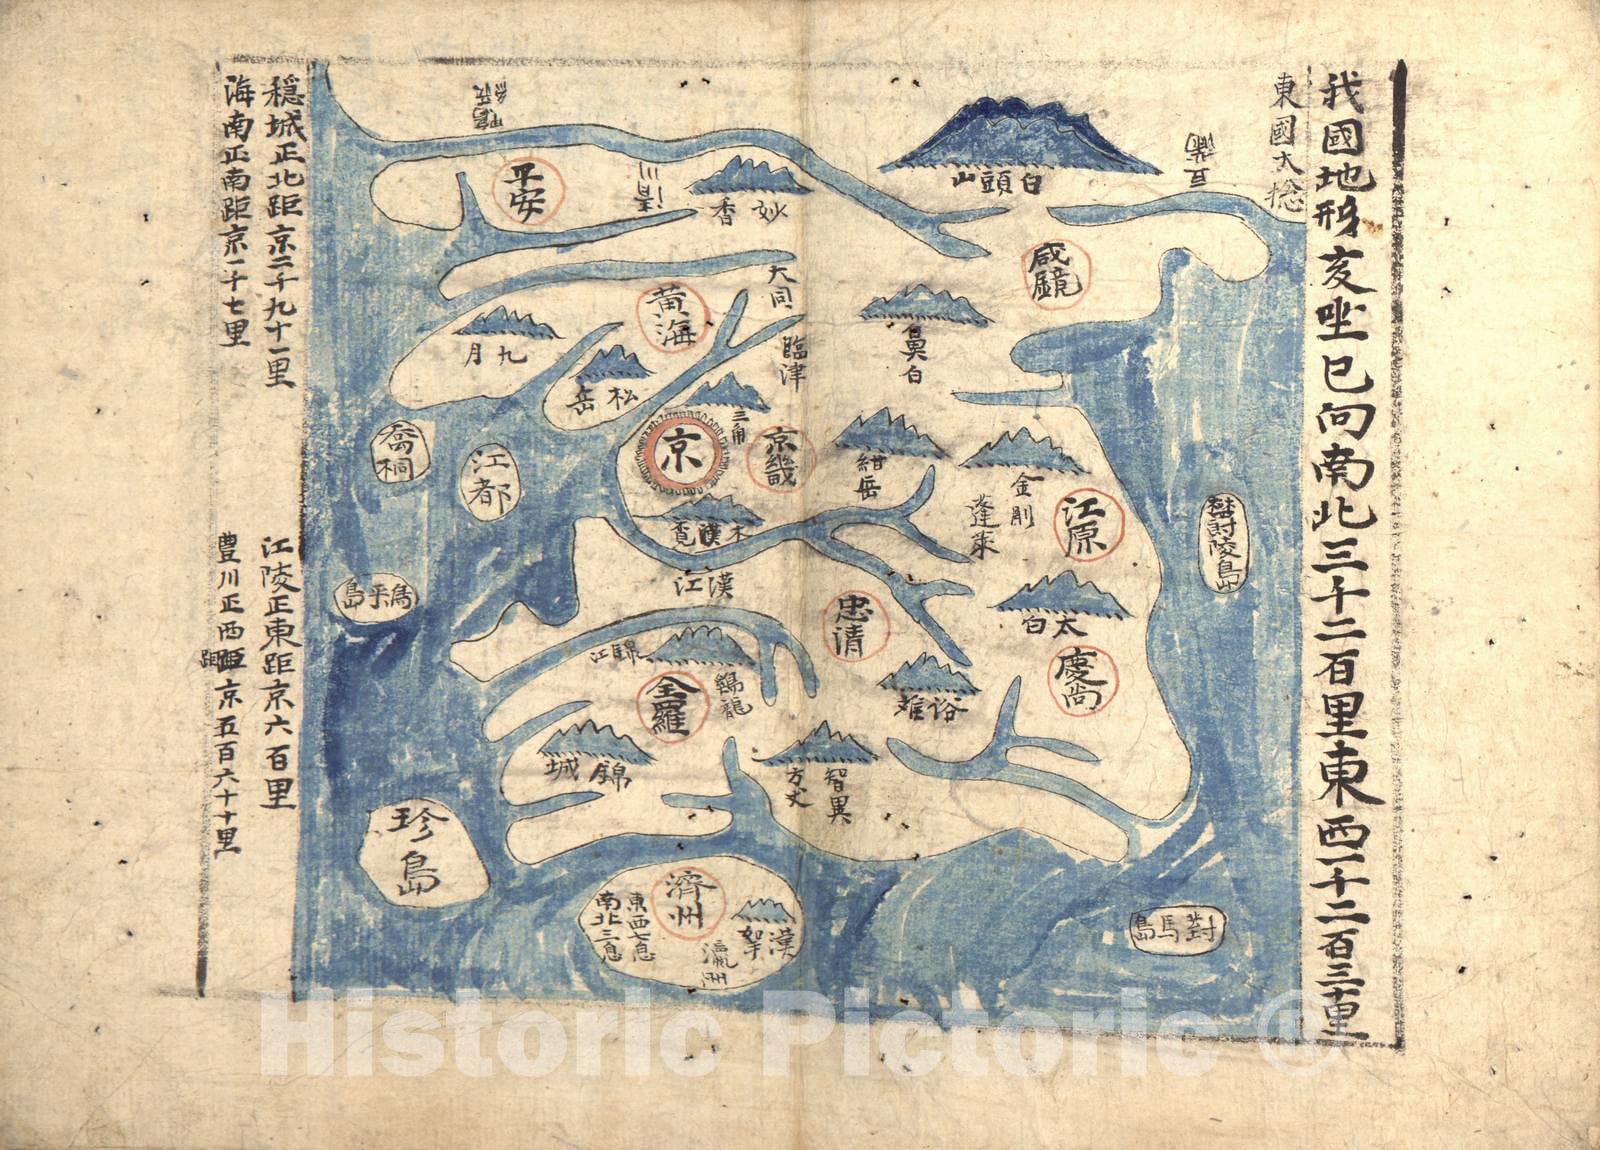 我國地形亥坐巳向南北三千二百里東西千二百三十里
東國大捴
豆滿
白頭山
咸鏡
鼻白
妙香
清川
鴨綠
平安
大同
黃海
九月
松岳
臨津
三角
京
京畿
紺岳
金剛
蓬萊
江原
木覔
漢江
太白
忠清
慶尚
俗離
錦江
鷄龍
全羅
錦城
智異
方丈
喬桐
江都
島
珍島
濟州
漢拏
瀛洲
東西七息
南北三息
對馬島
陵島
穩城正北距京二千九十一里
海南正南距京一千七里
江陵正東距京六百里
豊川正西距京五百六十里
Historic Pictoric ®